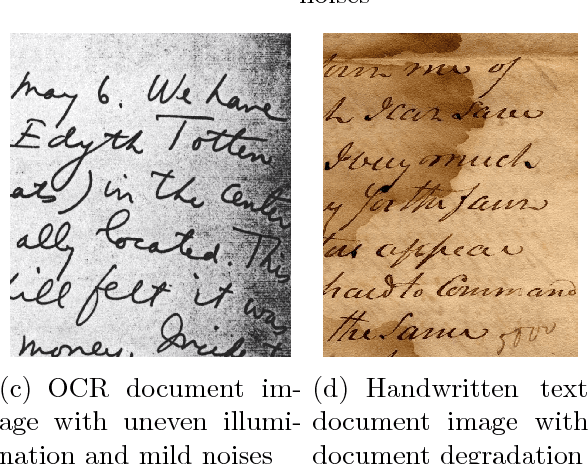 noises
may 6. We have
Edyth Totten
ats) in the center
ally located. This
ill felt it was
money.
me of
much
for the favor
as appear
hard to Command
the Same
5000
(c) OCR document im-
age with uneven illumi-
nation and mild noises
(d) Handwritten text
document image with
document degradation